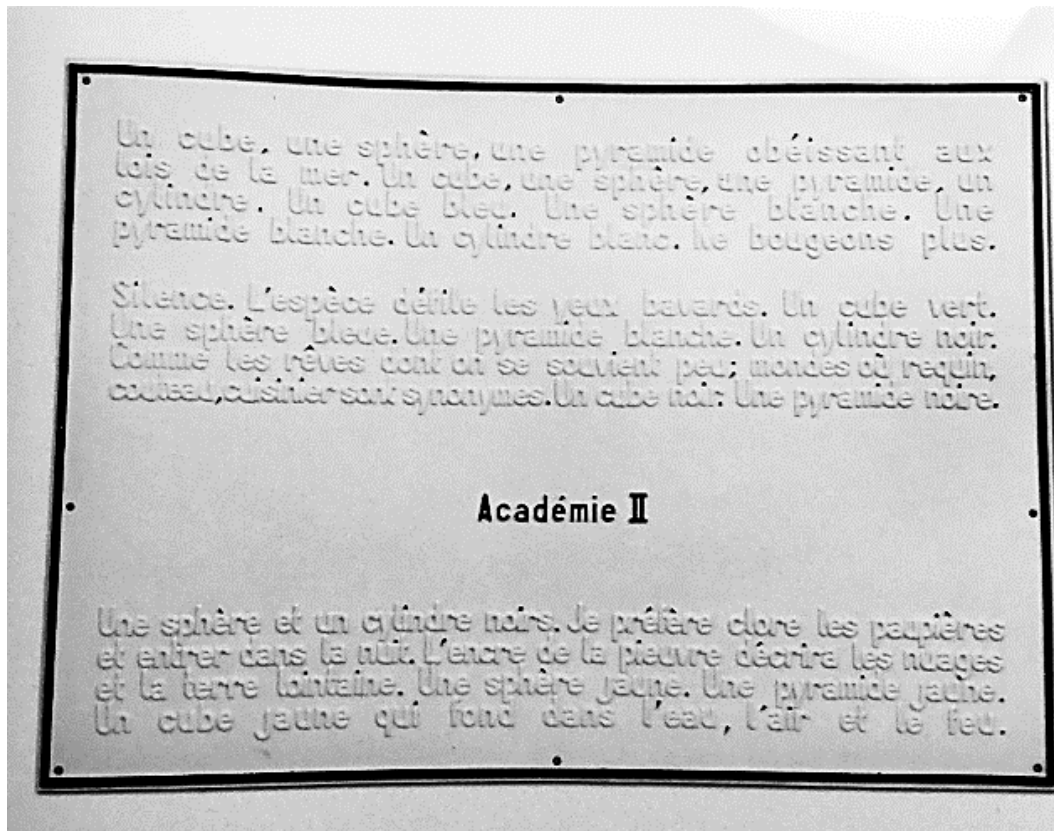 Un cube, une sphère, une pyramide obéissant aux
lois de la mer. Un cube, une sphère, une pyramide, un
cylindre. Un cube bleu. Une sphère blanche. Une
pyramide blanche. Un cylindre blanc. Ne bougeons plus.
Silence. L'espèce défile les yeux bavards. Un cube vert.
Une sphère bleue. Une pyramide blanche. Un cylindre noir.
Comme les rêves dont on se souvient peu; mondes où requin,
couteau, cuisinier sont synonymes. Un cube noir. Une pyramide noire.
Académie II
Une sphère et un cylindre noirs. Je préfère clore les paupières
et entrer dans la nuit. L'encre de la pieuvre décrira les nuages
et la terre lointaine. Une sphère jaune. Une pyramide jaune.
Un cube jaune qui fond dans l'eau, l'air et le feu.